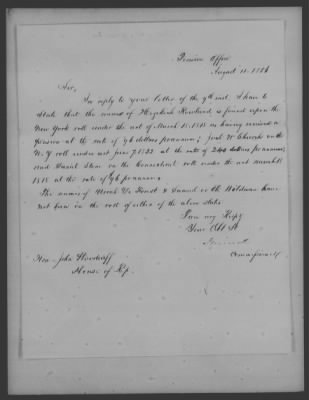 Pension Office
August 11. 1856
Sir,
In reply to your letter of the 9th inst, I have to
state that the name of Hezekiah Rowland is found upon the
New York roll under the act of March 18. 1818 as having received a
pension at the rate of 96 dollars per annum; Joel W. on the
N. Y. roll under act June 7. 1832 at the rate of dollars per annum,
and Daniel Stone on the Connecticut rolls under the act March 18
1818 at the rate of 96 per annum.
The names of & Samuel or Waldman have
not been on the roll of either of the above states
I am very Resp'y
Your Obt St
Commissioner
Hon John Woodruff
House of Rep.